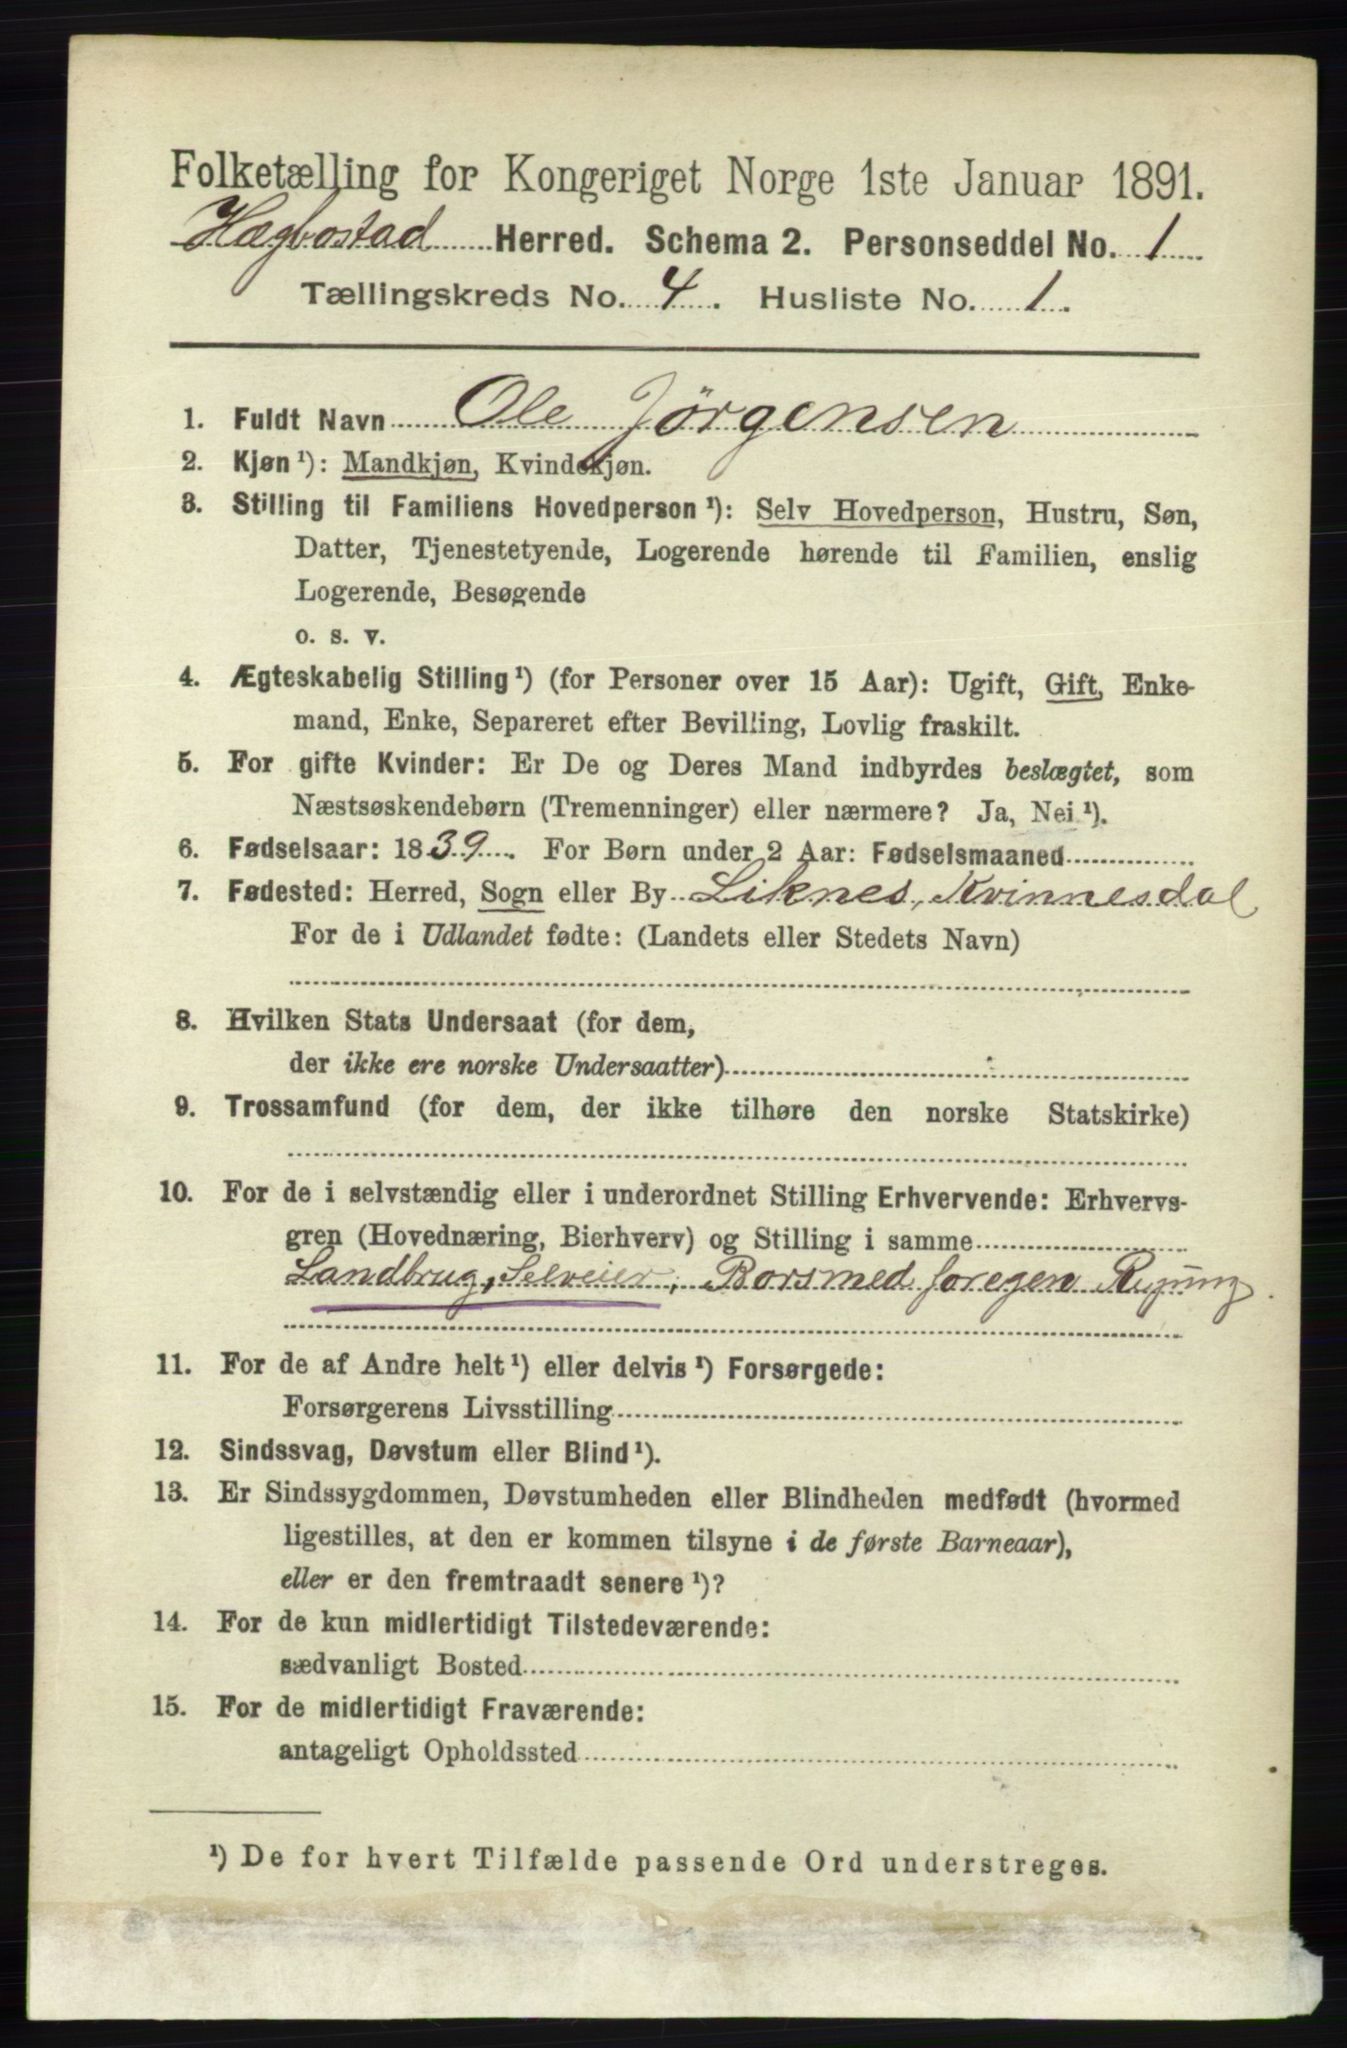 Folketælling for Kongeriget Norge 1ste Januar 1891.
Hægbostad Herred. Schema 2. Personseddel No. 1
Tællingskreds No. 4. Husliste No. 1.
1. Fuldt Navn Ole Jörgensen
2. Kjøn ¹): Mandkjøn, Kvindekjøn.
3. Stilling til Familiens Hovedperson ¹): Selv Hovedperson, Hustru, Søn,
Datter, Tjenestetyende, Logerende hørende til Familien, enslig
Logerende, Besøgende
o. s. v.
4. Ægteskabelig Stilling ¹) (for Personer over 15 Aar): Ugift, Gift, Enke-
mand, Enke, Separeret efter Bevilling, Lovlig fraskilt.
5. For gifte Kvinder: Er De og Deres Mand indbyrdes beslægtet, som
Næstsøskendebørn (Tremenninger) eller nærmere? Ja, Nei ¹).
6. Fødselsaar: 1839. For Børn under 2 Aar: Fødselsmaaned
7. Fødested: Herred, Sogn eller By Liknes, Kvinnesdal
For de i Udlandet fødte: (Landets eller Stedets Navn)
8. Hvilken Stats Undersaat (for dem,
der ikke ere norske Undersaatter)
9. Trossamfund (for dem, der ikke tilhøre den norske Statskirke)
10. For de i selvstændig eller i underordnet Stilling Erhvervende: Erhvervs-
gren (Hovednæring, Bierhverv) og Stilling i samme
Landbrug, Selveier, Borsmed foregen Regning
11. For de af Andre helt ¹) eller delvis ¹) Forsørgede:
Forsørgerens Livsstilling
12. Sindssvag, Døvstum eller Blind ¹).
13. Er Sindssygdommen, Døvstumheden eller Blindheden medfødt (hvormed
ligestilles, at den er kommen tilsyne i de første Barneaar),
eller er den fremtraadt senere ¹)?
14. For de kun midlertidigt Tilstedeværende:
sædvanligt Bosted
15. For de midlertidigt Fraværende:
antageligt Opholdssted
¹) De for hvert Tilfælde passende Ord understreges.